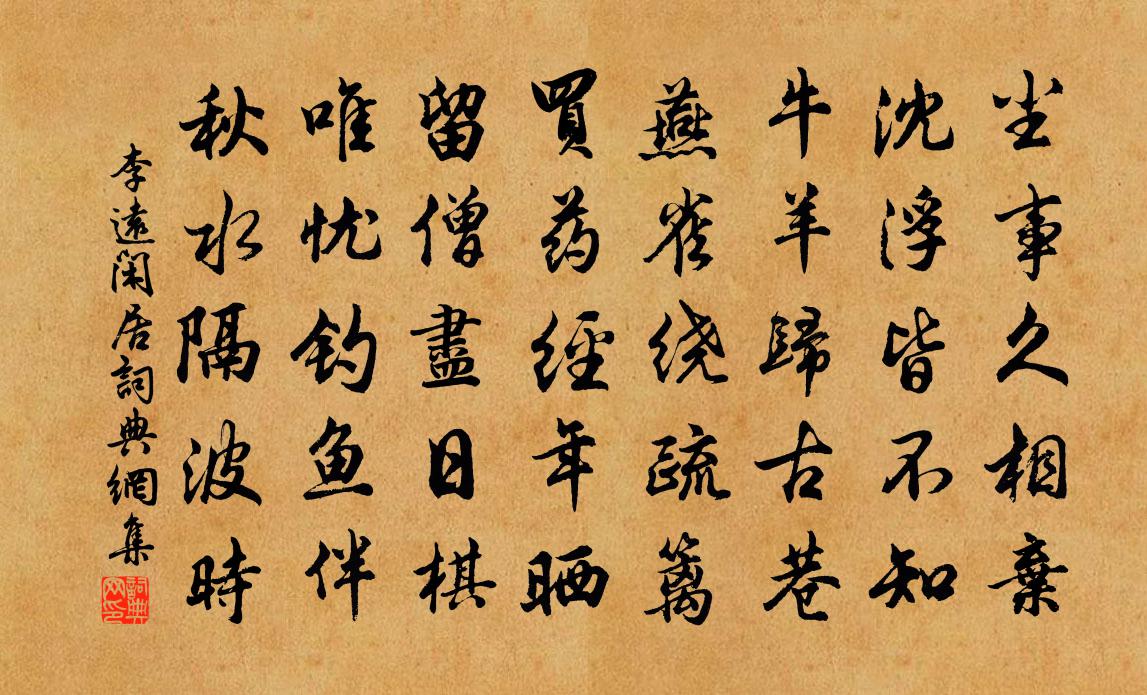 尘事久相棄
沈浮皆不知
牛羊歸古巷
燕雀绕疏篱
買药經年晒
留僧盡日棋
唯忧钓鱼伴
秋水隔波時
李遠闲居詞典網集
詞典网印